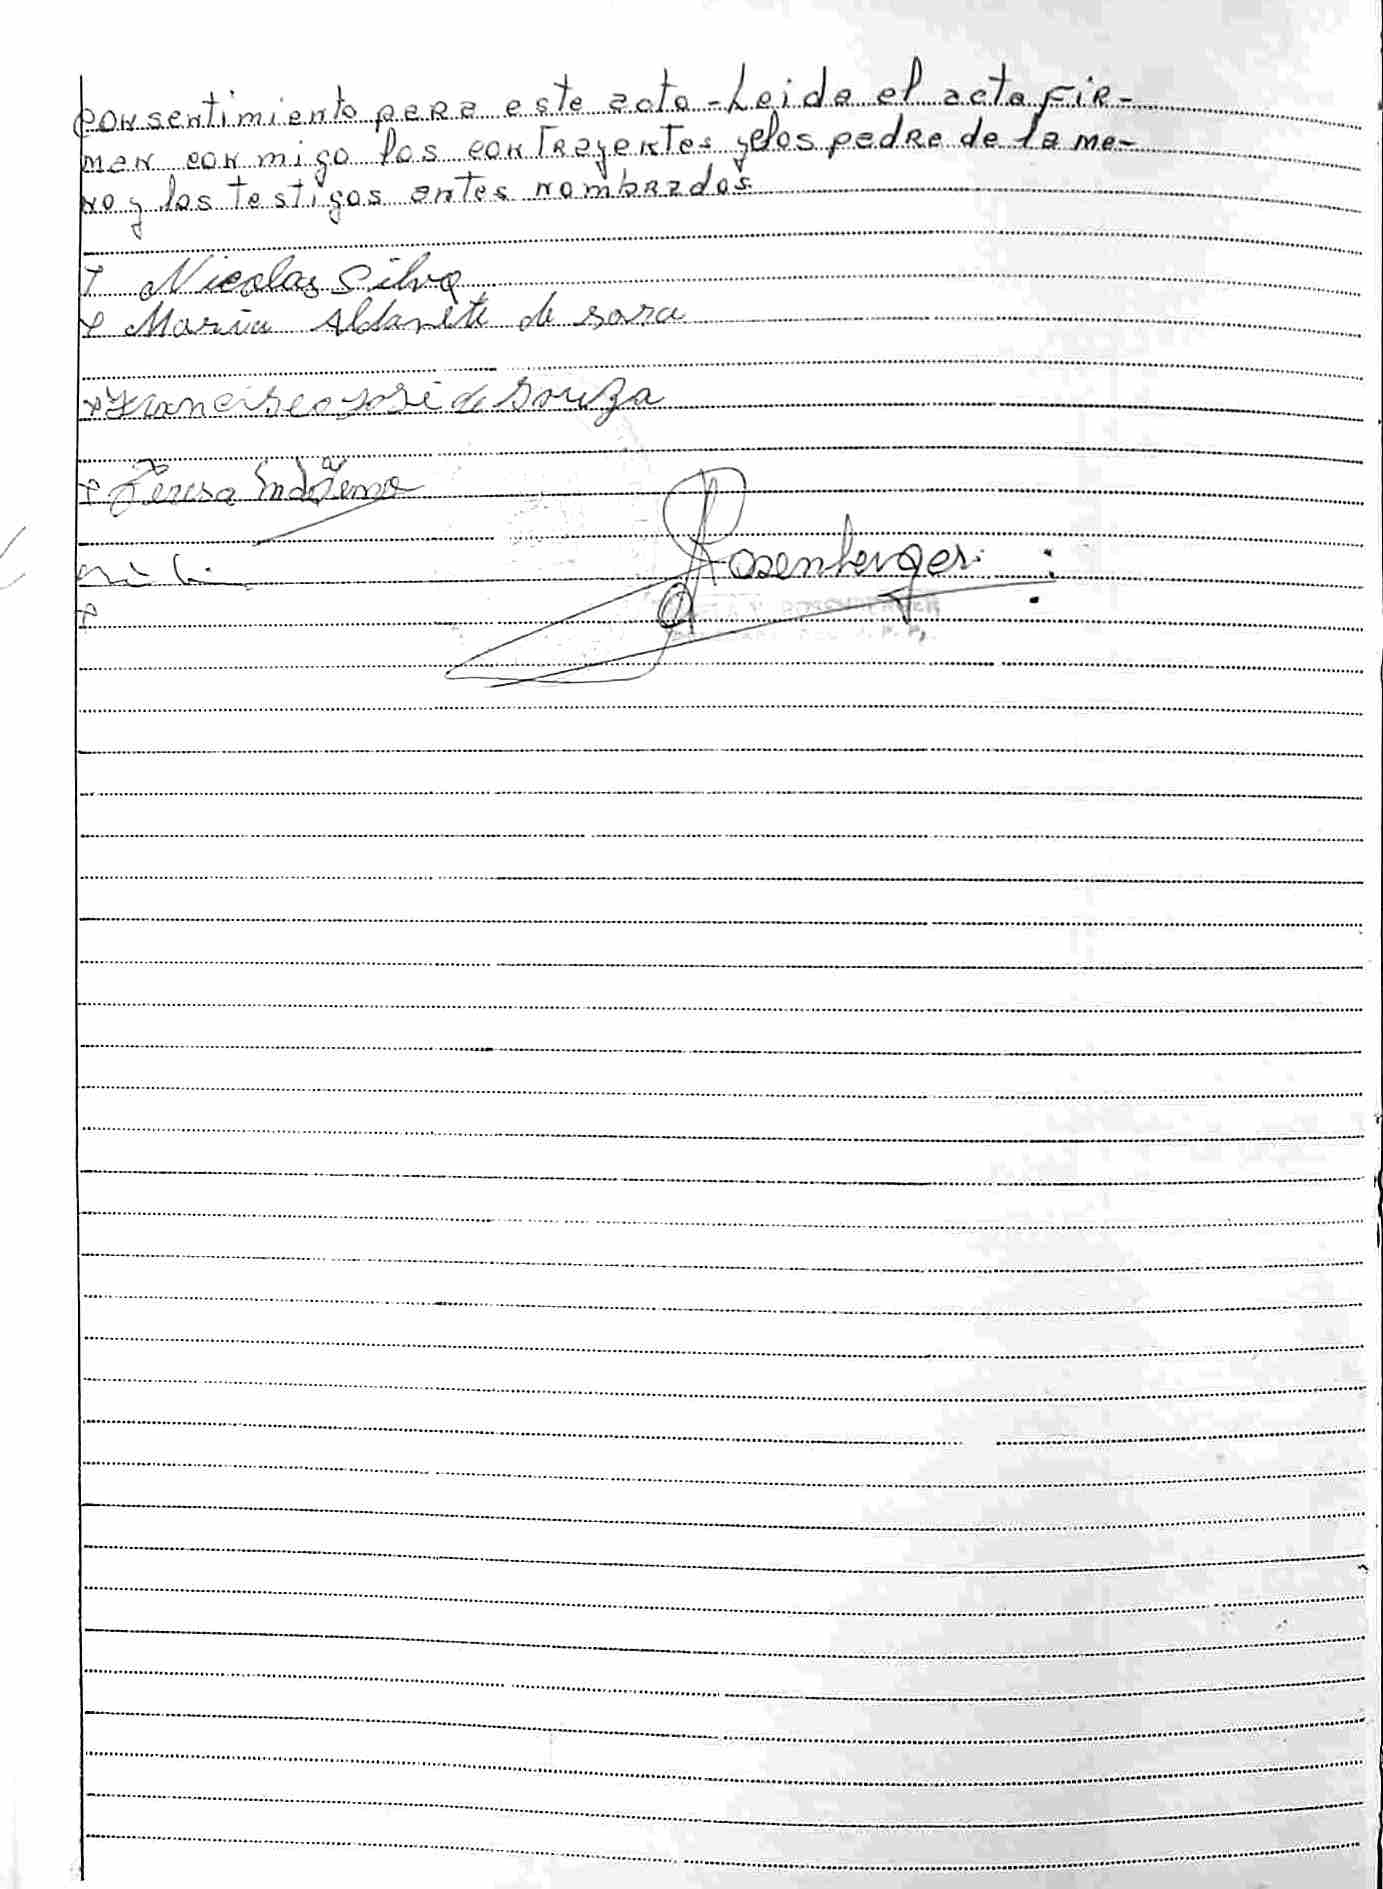 consentimiento para este acto - Leida el acta fir-
man conmigo los contrayentes y los padre de la me-
no y los testigos antes nombrados.
Nicolas Silva
Maria Aldanete de sosa
Francisco José de Souza
Teresa
Rosenberger